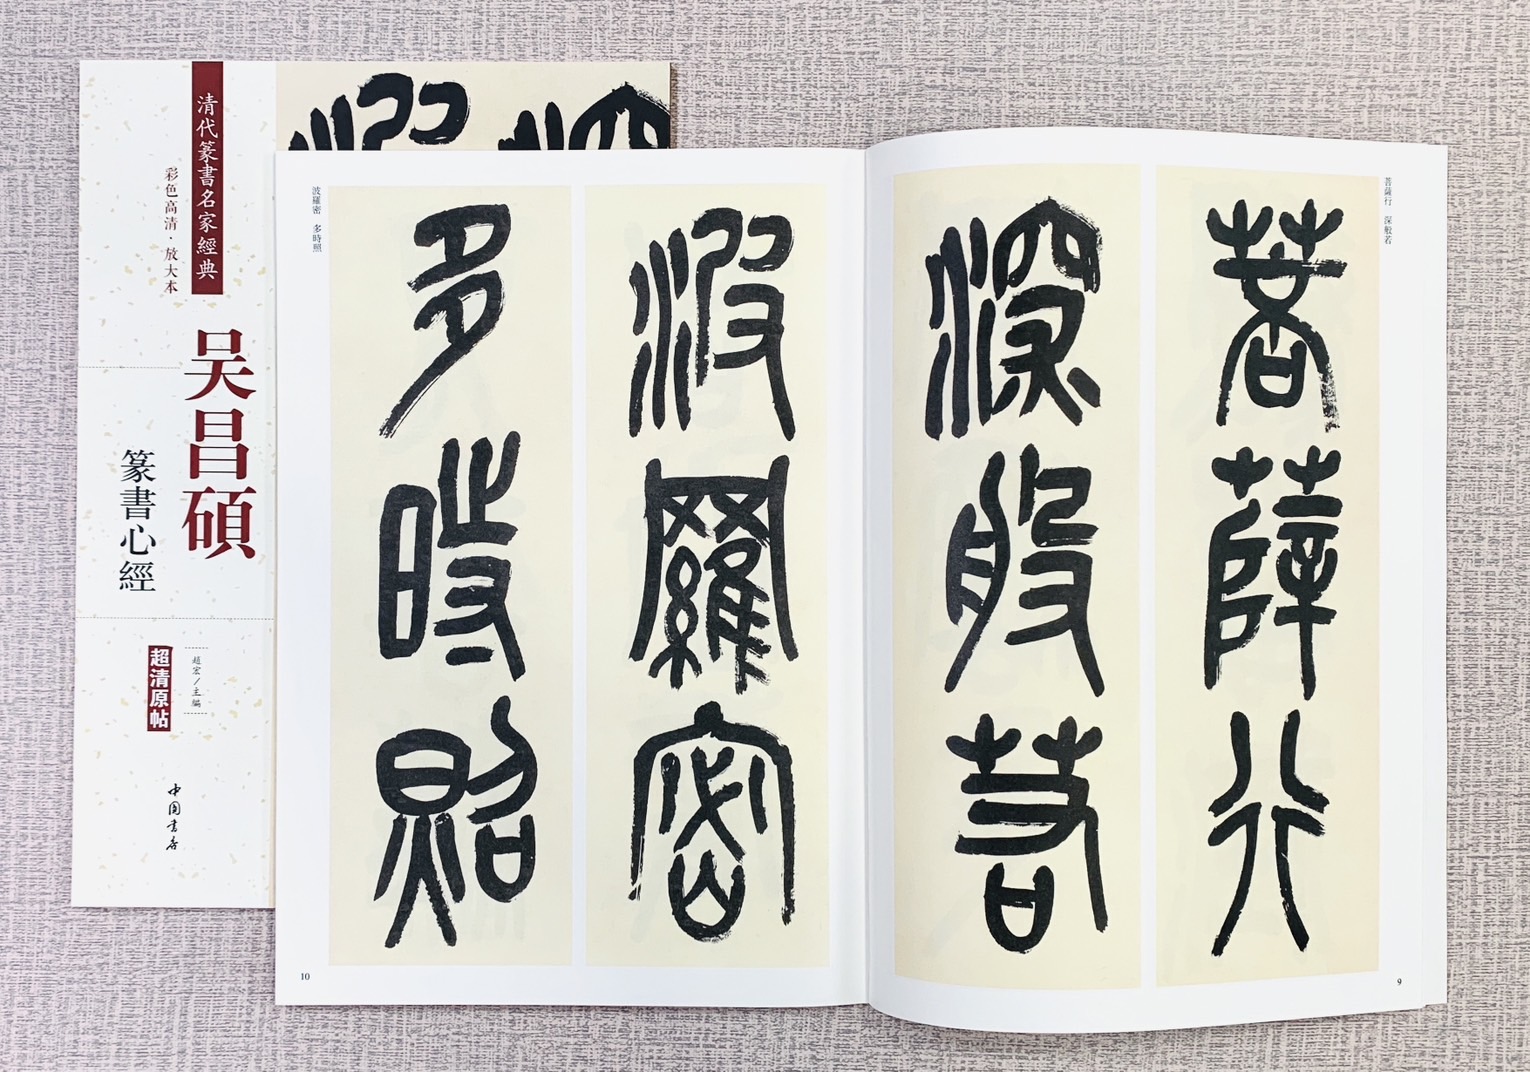 清代篆書名家經典
彩色高清·放大本
吴昌碩
篆書心經
趙宏／主編
超清原帖
中国书店
菩薩行 深般若
菩薩行
深般若
9
波羅密 多時照
波羅密
多時照
10